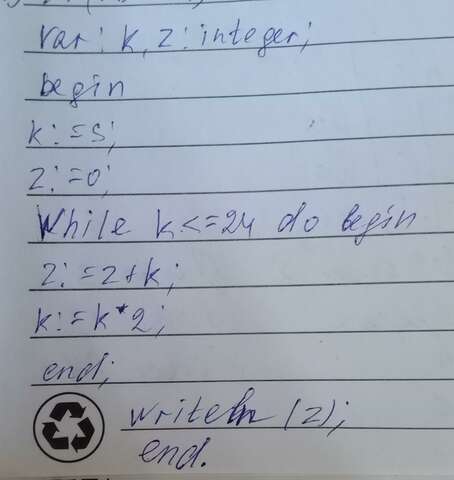 var: k, z: integer;
begin
k:=5;
z:=0;
While k<=24 do begin
z:=z+k;
k:=k*2;
end;
writeln (z);
end.